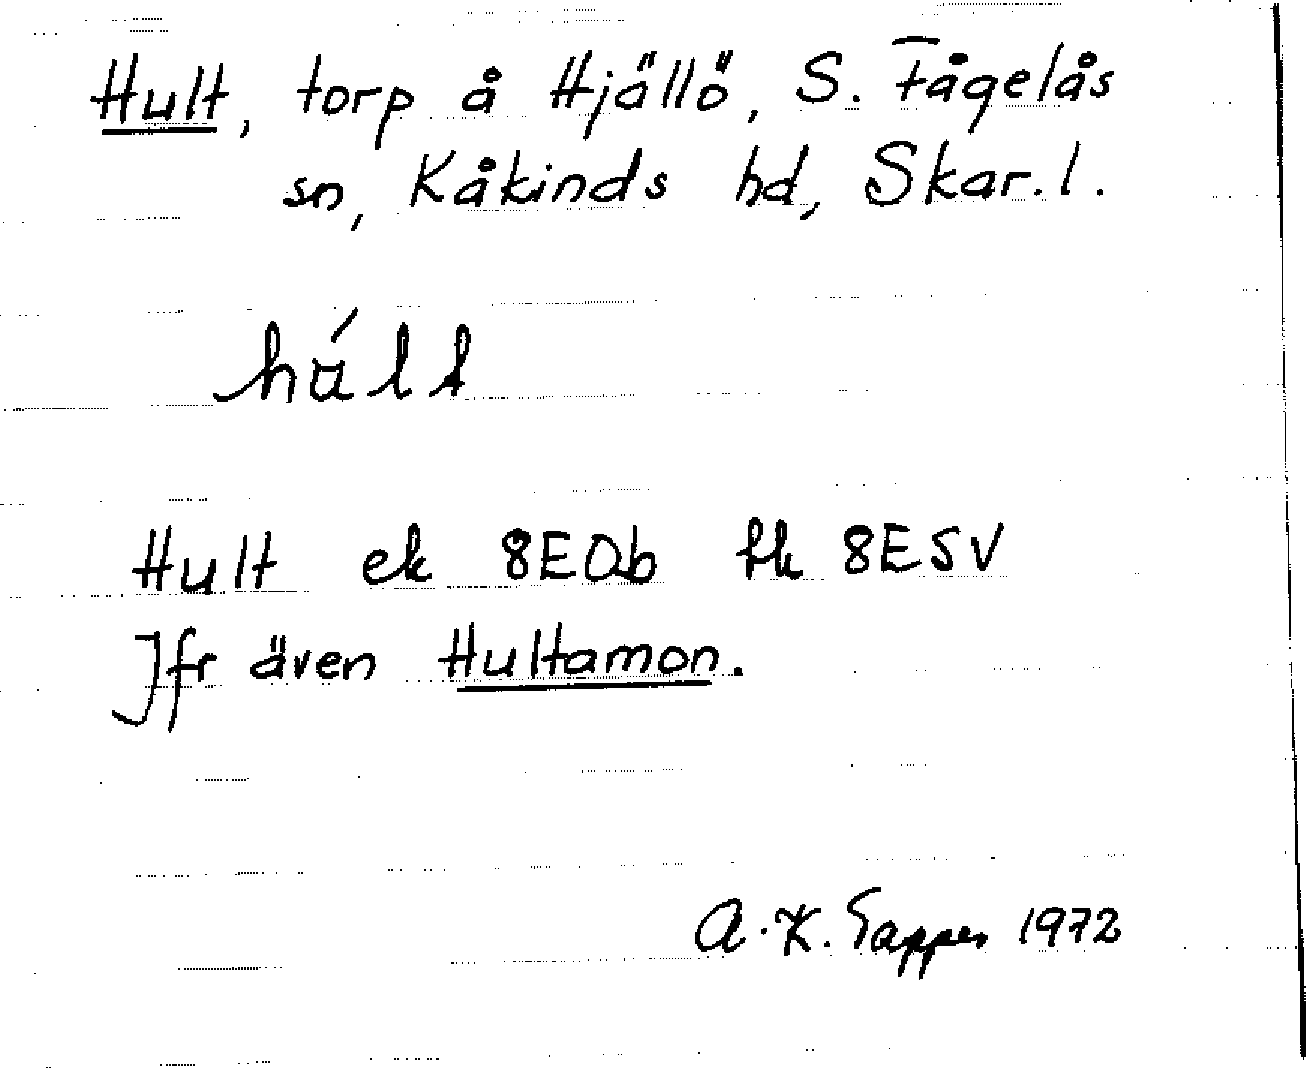 Hult, torp å Hjällö, S. Fågelås
sn, Kåkinds hd, Skar. l.
Hult ek 8E0b fk 8ESV
Jfr även Hultamon.
A. K. 1972